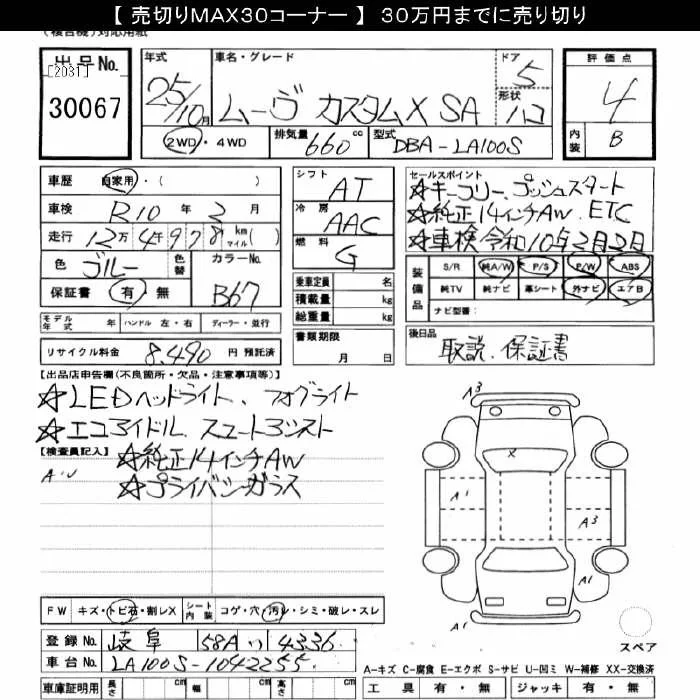 【 売切りMAX30コーナー 】 30万円までに売り切り
(複合機)対応用紙
出品No. 年式 車名・グレード ドア 評価点
[2031] 5
30067 25/10月 ムーヴ カスタムX SA 形状 ハコ 4
2WD・4WD 排気量 660 cc 型式 DBA-LA100S 内装 B
車歴 自家用・( ) シフト AT セールスポイント
☆キーフリー、プッシュスタート
車検 R10年2月 冷房 AAC ☆純正14インチAW、ETC
走行 12万4千978 km マイル( ) 燃料 G ☆車検令和10年2月2日
色 ブルー 色替 カラーNo. B67 乗車定員 名 装備品 S/R 純A/W P/S P/W ABS
保証書 有・無 積載量 kg 純TV 純ナビ 革シート 外ナビ エアB
総重量 kg ナビ型番:
モデル年式 年 ハンドル 左・右 ディーラー・並行 書類期限 月 日 後日品 取説、保証書
リサイクル料金 8,490 円 預託済
【出品店申告欄(不良箇所・欠品・注意事項等)】
☆LEDヘッドライト、フォグライト
☆エコアイドル
【検査員記入】 ☆純正14インチAW
☆プライバシーガラス
A3
X
A1 A3
A1
A1
スペア
FW キズ・トビ石・割レX シート内装 コゲ・穴・汚レ・シミ・破レ・スレ
登録No. 岐阜 58A い 4336
車台No. LA100S-1042255 A-キズ C-腐食 E-エクボ S-サビ U-凹ミ W-補修 XX-交換済
車庫証明用 長さ cm 幅 cm 高さ cm 工具 有・無 ジャッキ 有・無